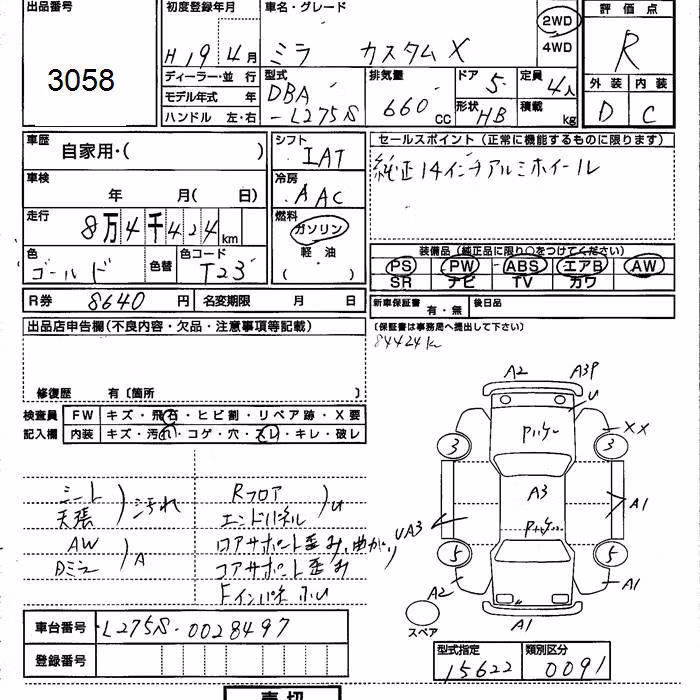 出品番号
3058
初度登録年月
H19 4月
車名・グレード
ミラ カスタムX
2WD
4WD
評価点
R
外装 内装
D C
ディーラー・並行
モデル年式 年
ハンドル 左・右
型式
DBA
-L275S
排気量
660 CC
ドア 5
形状 HB
定員 4人
積載 kg
車歴
自家用・( )
車検
年 月( 日)
走行
8万4千424km
色
ゴールド
色替
色コード
T23
シフト
IAT
冷房
AAC
燃料
ガソリン
軽油
( )
セールスポイント(正常に機能するものに限ります)
純正14インチアルミホイール
装備品(純正品に限り○をつけてください)
PS PW ABS エアB AW
SR ナビ TV カワ
R券 8640 円 名変期限 月 日
新車保証書 有・無 後日品
(保証書は事務局へ提出して下さい)
84424k
出品店申告欄(不良内容・欠品・注意事項等記載)
修復歴 有〔箇所 〕
検査員 FW キズ・飛石・ヒビ割・リペア跡・X要
記入欄 内装 キズ・汚れ・コゲ・穴・スレ・キレ・破レ
シート
天張
汚れ
AW
Dミラ
A
Rフロア
エンドパネル
U
ロアサポート歪み、曲がり
コアサポート歪み
A2 A3P
U
XX
3 3
A3
A1
UA3
5 5
A2 A1
A1
スペア
車台番号 L275S-0028497
登録番号
型式指定 類別区分
15622 0091
売切